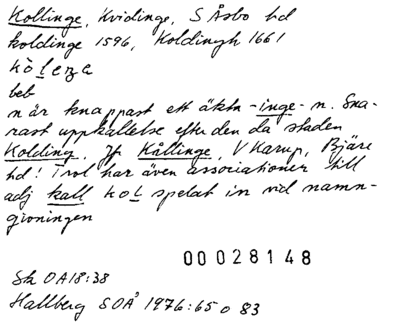 Kollinge, Kvidinge, S Åsbo hd
koldinge 1596, Koldingh 1661
kòleŋe
beb
när knappast ett äkta -inge- n. Sna-
rast uppkallelse efter den da staden
Kolding. Jf Kållinge, V Karup, Bjäre
hd! Trol har även associationer till
adj kall kol spelat in vid namn-
givningen
00028148
Sk OA18:38
Hallberg SOÅ 1976:65 o 83